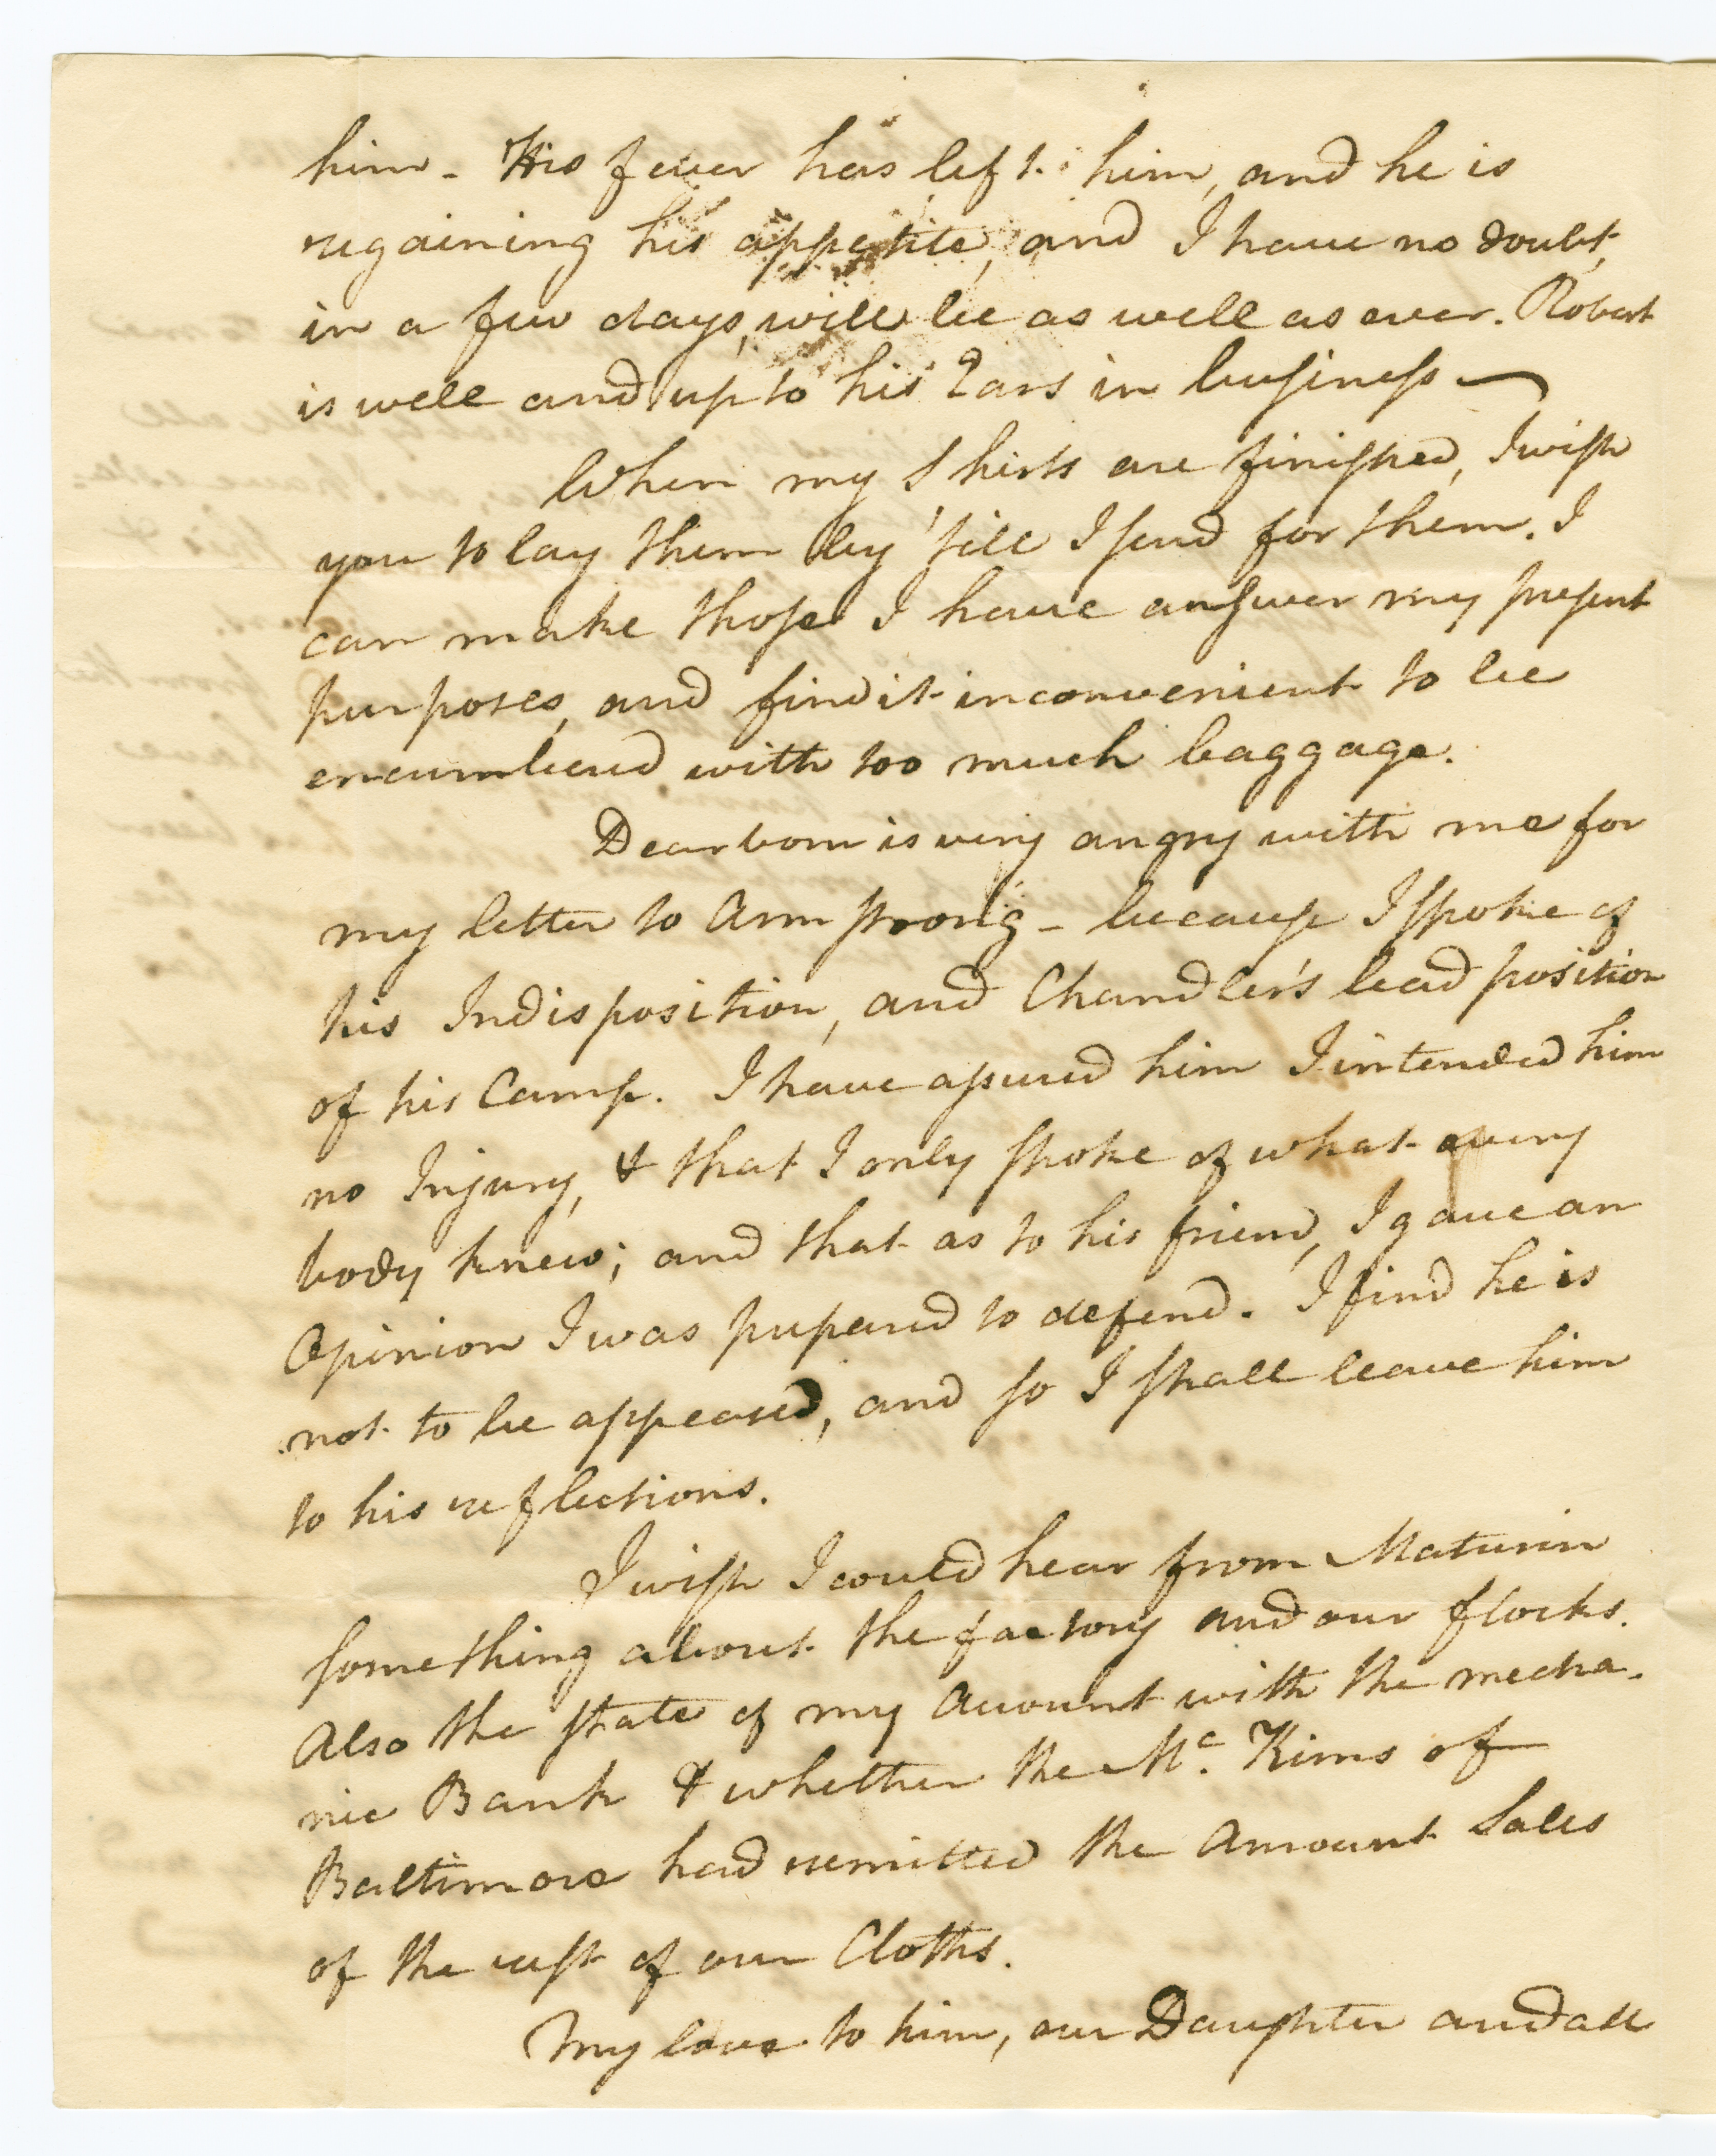 him - His fever has left him, and he is
regaining his appetite, and I have no doubt,
in a few days, will be as well as ever. Robert
is well and up to his Ears in business —
When my Shirts are finished, I wish
you to lay them by 'till I send for them. I
can make those I have answer my present
purposes, and find it inconvenient to be
encumbered with too much baggage.
Dearborn is very angry with me for
my letter to Armstrong - because I spoke of
his Indisposition, and Chandler's bad position
of his Camp. I have assured him I intended him
no Injury, & that I only spoke of what every
body knew; and that as to his friend, I gave an
Opinion I was prepared to defend. I find he is
not to be appeased, and so I shall leave him
to his reflections.
I wish I could hear from Maturin
something about the factory and our flocks.
Also the state of my Account with the mecha-
nic Bank & whether the Mc. Kims of
Baltimore had remitted the Amount Sales
of the rest of our Cloths.
My love to him, our Daughter and all